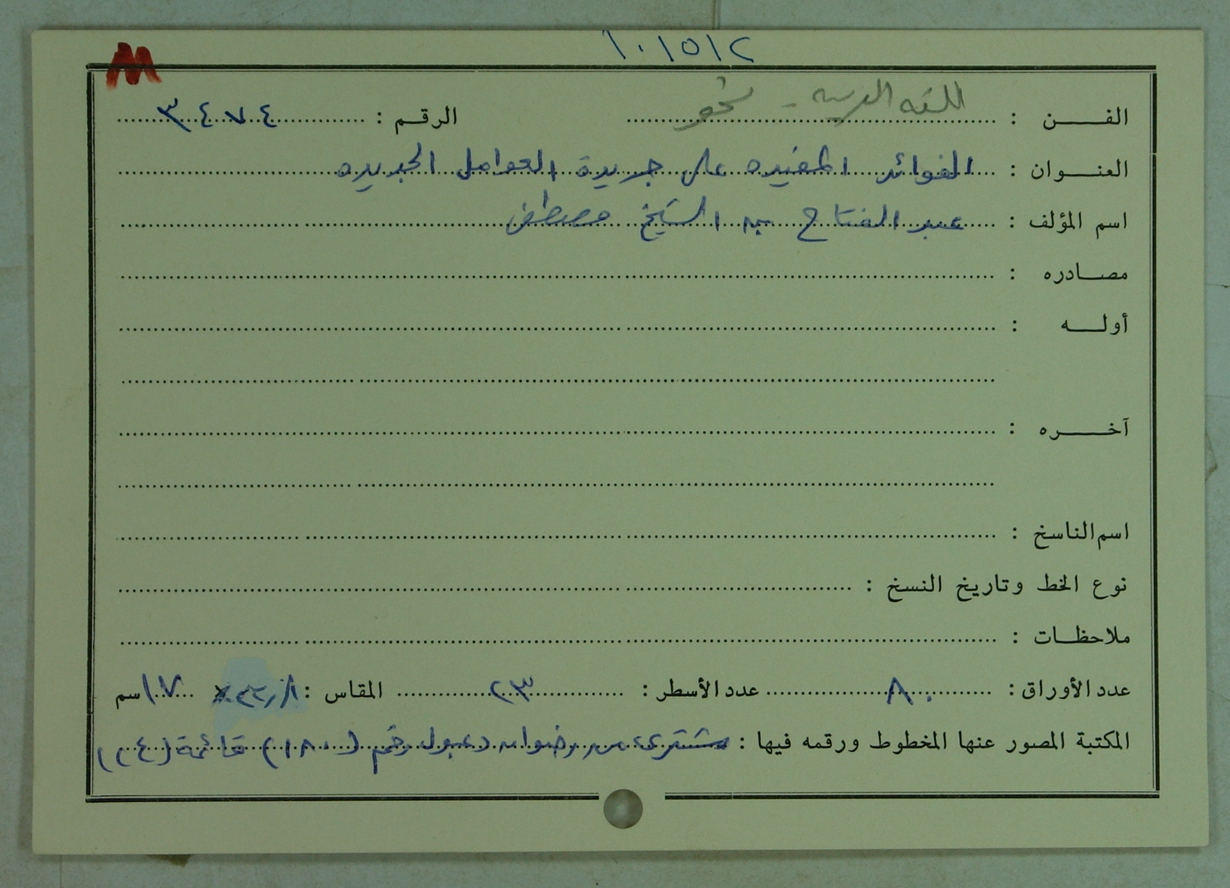 ١٠١٥١٢
الفن : اللغه العربيه - نحو الرقم : ٣٤٧٤
العنوان : الفوائد المفيده على جريدة العوامل الجديده
اسم المؤلف : عبد الفتاح بن الشيخ مصطفى
مصادره :
أوله :
آخره :
اسم الناسخ :
نوع الخط وتاريخ النسخ :
ملاحظات :
عدد الأوراق : ٨٠ عدد الأسطر : ٢٣ المقاس : × ١٧ سم
المكتبة المصور عنها المخطوط ورقمه فيها : مشترى من رضوان دعبول رقم (١٨٠) قائمة